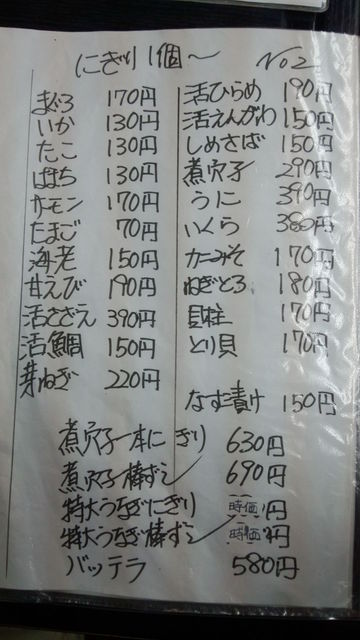 にぎり1個〜 No2
まぐろ 170円
いか 130円
たこ 130円
はまち 130円
サーモン 170円
たまご 70円
海老 150円
甘えび 190円
活さざえ 390円
活鯛 150円
芽ねぎ 220円
活ひらめ 190円
活えんがわ 150円
しめさば 150円
煮穴子 290円
うに 390円
いくら 380円
カニみそ 170円
ねぎとろ 180円
貝柱 170円
とり貝 170円
なす漬け 150円
煮穴子一本にぎり 630円
煮穴子棒ずし 690円
特大うなぎにぎり 時価 円
特大うなぎ棒ずし 時価 円
バッテラ 580円